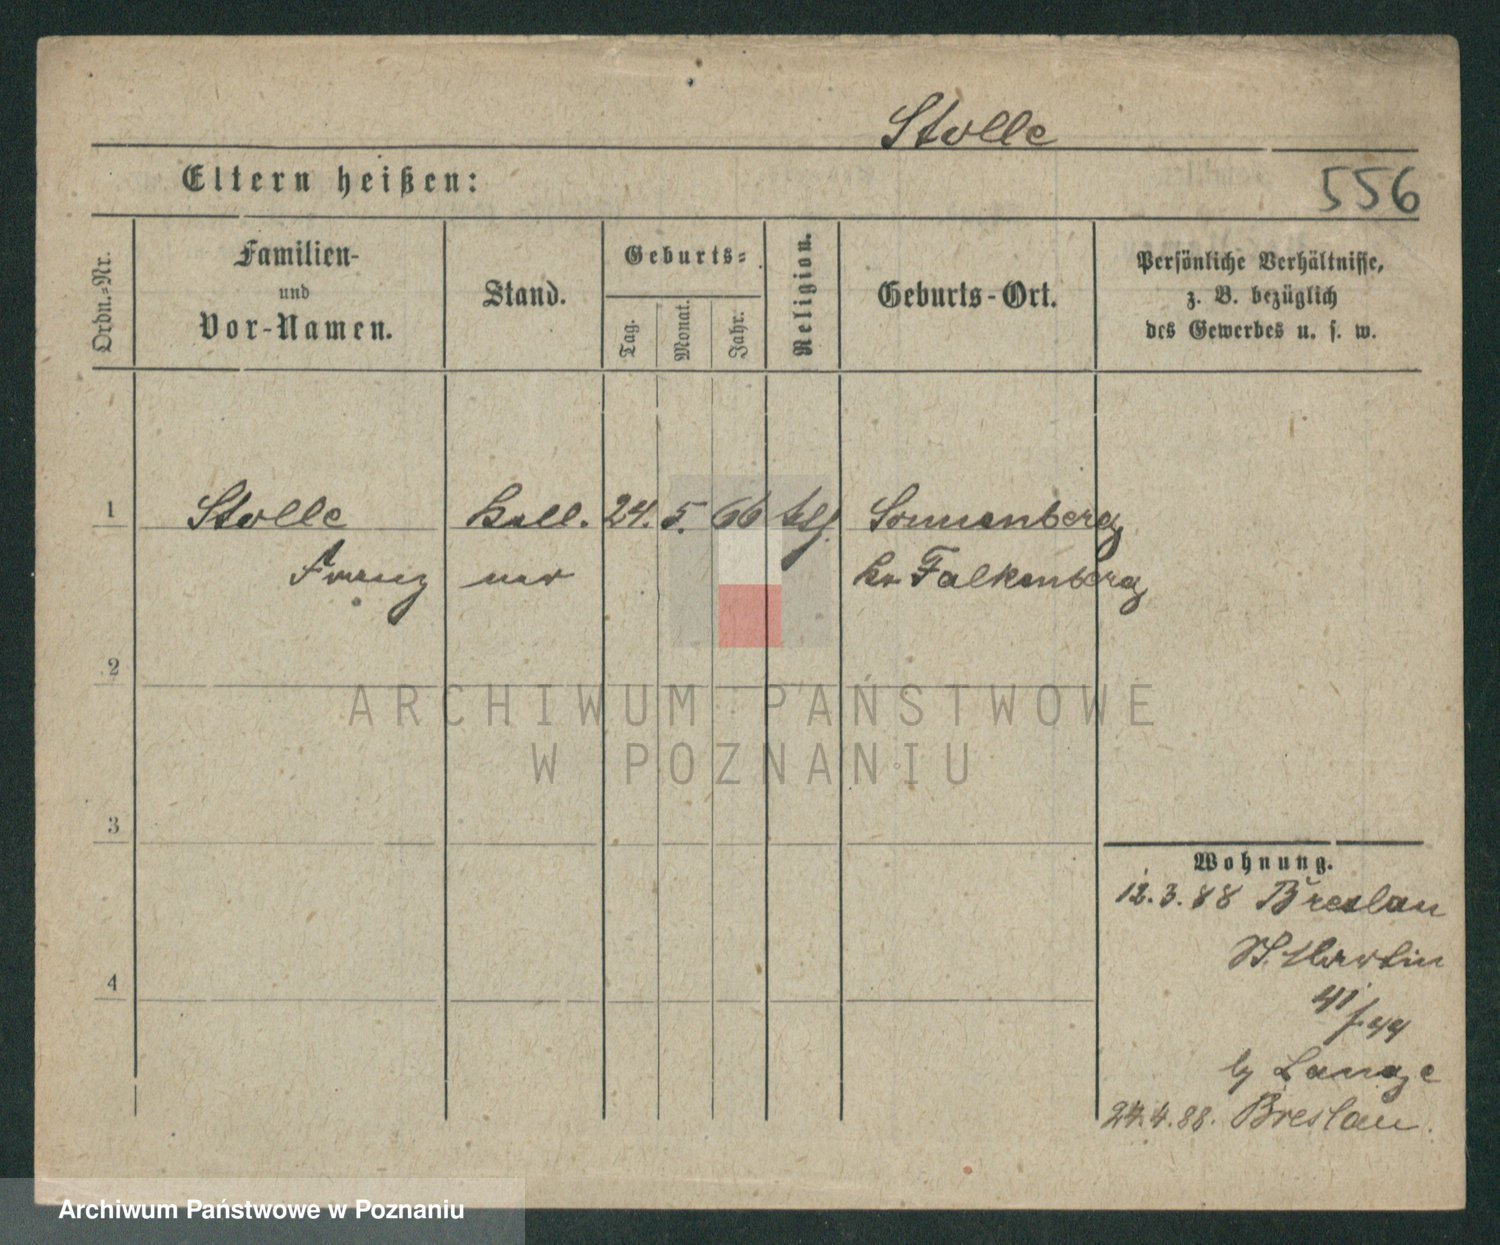 Stolle
Eltern heißen:
556
Ordn.-Nr.
Familien-
und
Vor-Namen.
Stand.
Geburts-
Tag.
Monat.
Jahr.
Religion.
Geburts-Ort.
Persönliche Verhältnisse,
z. B. bezüglich
des Gewerbes u. s. w.
1 Stolle Kell. 24. 5. 66 Sonnenberg
Franz ner Kr Falkenberg
2
ARCHIWUM PAŃSTWOWE
W POZNANIU
3
Wohnung.
12.3.88 Breslau
St. Martin
4
41/44
b/ Lange
24.4.88. Breslau.
Archiwum Państwowe w Poznaniu